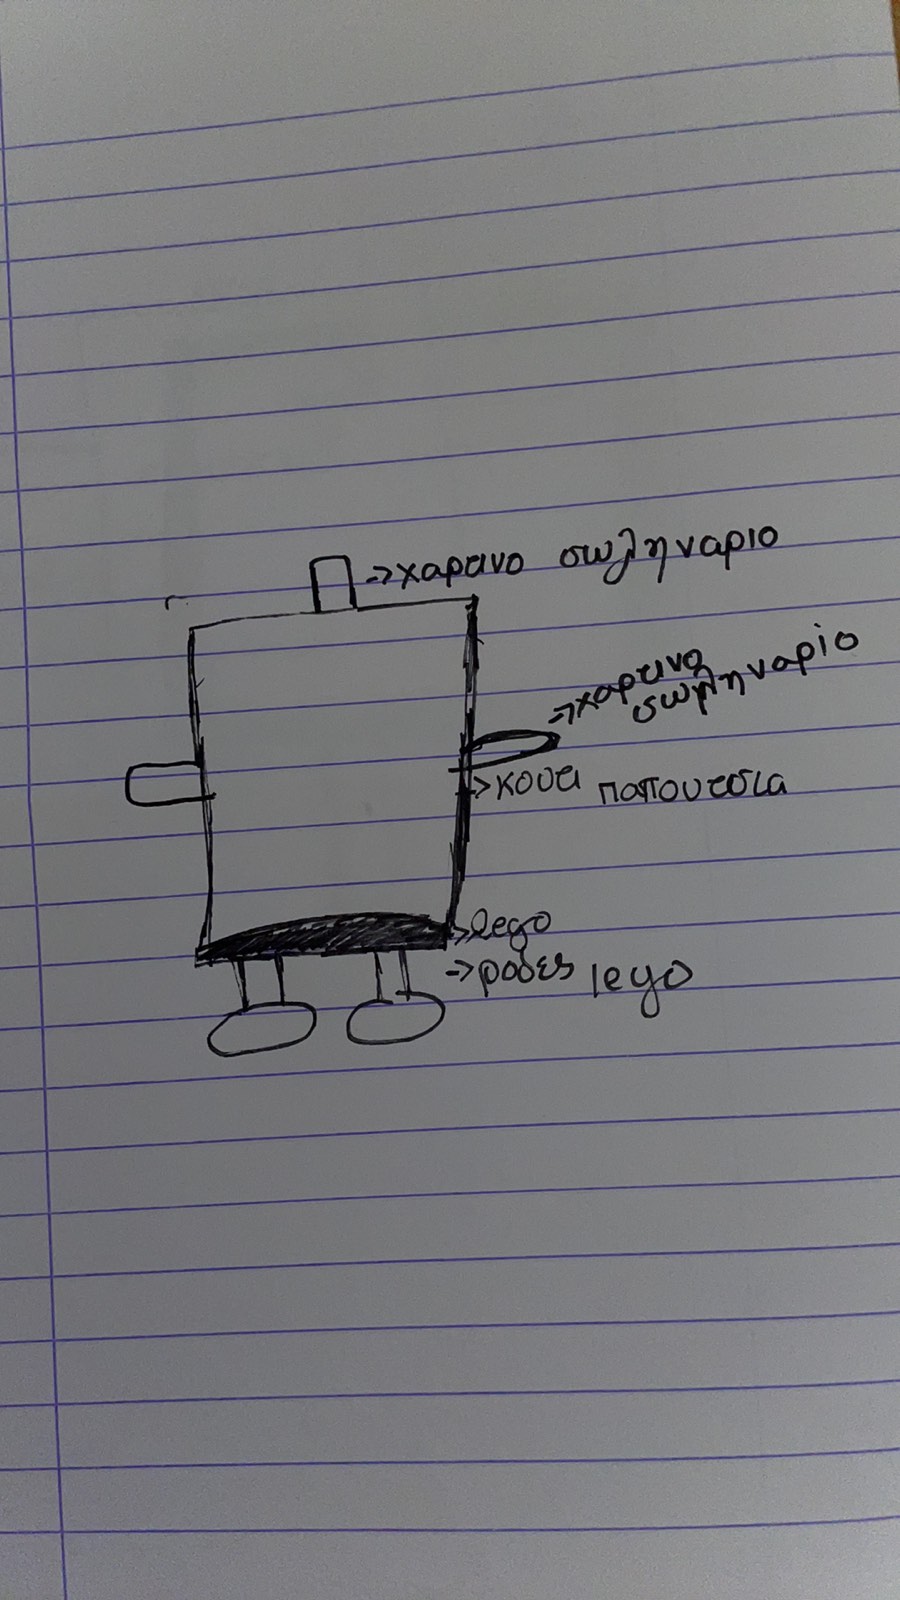 →χαρτινο σωληναριο
→χαρτινο
σωληναριο
→κουτι παπουτσια
→lego
→ροδες lego